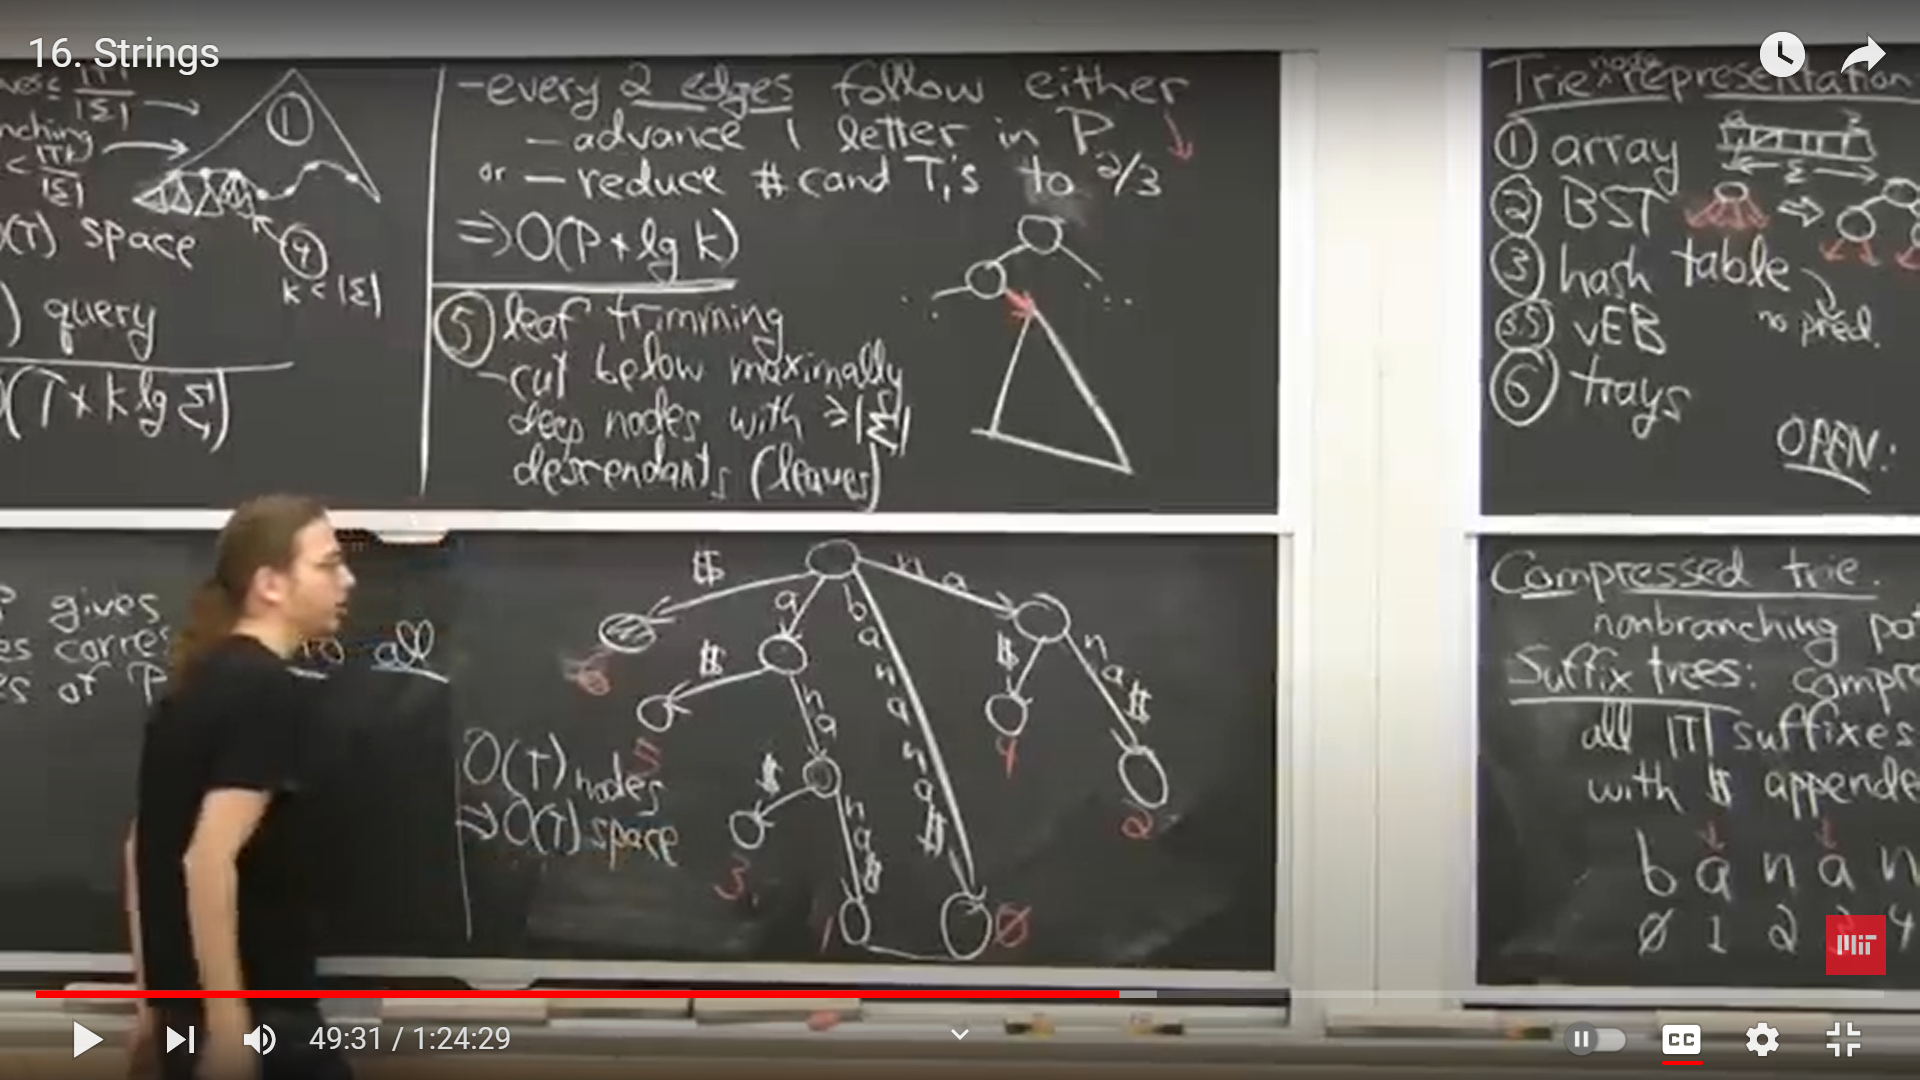 16. Strings
|T|
|Σ|
< |T|
|Σ|
1
4
k < |Σ|
(T) space
) query
(T + k lg Σ)
- every 2 edges follow either
- advance 1 letter in P
or - reduce # cand Ti's to 2/3
⇒ O(P + lg k)
5 leaf trimming
- cut below maximally
deep nodes with ≥|Σ|
descendants (leaves)
Trie node representation
1 array
Σ
2 BST
3 hash table
no pred.
3.5 vEB
6 trays
OPEN:
P gives
all
of P
O(T) nodes
⇒ O(T) space
$
a
b
a
n
a
n
a
$
n a
6
$
5
n
a
$
3
n
a
$
1
Ø
$
4
n
a
$
2
Compressed trie.
nonbranching
Suffix trees:
all |T| suffixes
with $
b a n a n
Ø 1 2 3 4
MIT
49:31 / 1:24:29
CC